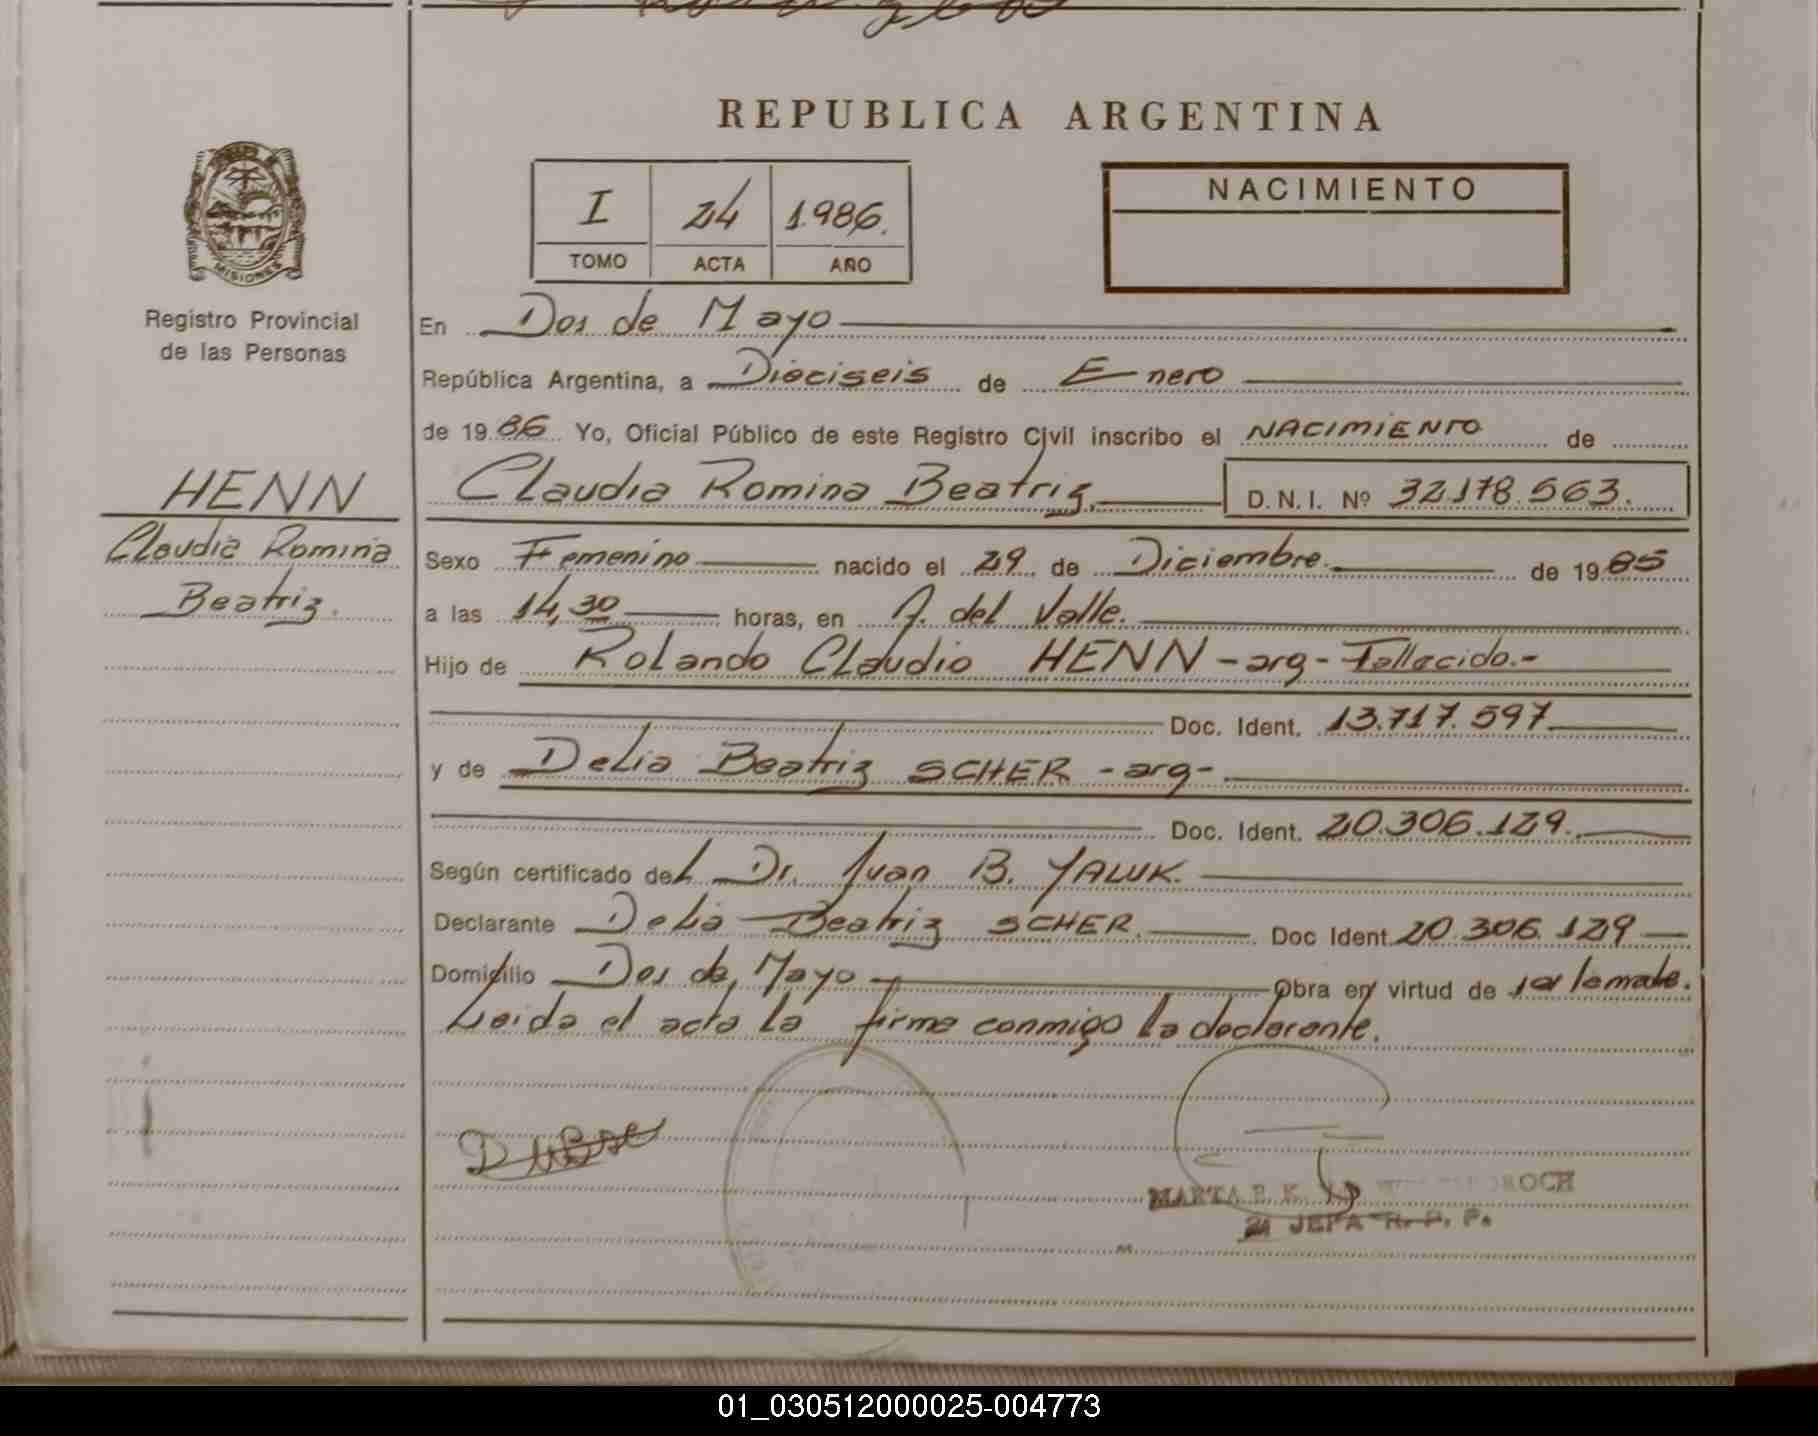 REPUBLICA ARGENTINA
I 24 1.986.
TOMO ACTA AÑO
NACIMIENTO
MISIONES
Registro Provincial
de las Personas
HENN
Claudia Romina
Beatriz.
En Dos de Mayo
República Argentina, a Dieciseis de Enero
de 19 86 Yo, Oficial Público de este Registro Civil inscribo el NACIMIENTO de
Claudia Romina Beatriz. D.N.I. Nº 32.178.563.
Sexo Femenino nacido el 29 de Diciembre. de 19 85
a las 14,30 horas, en A. del Valle.
Hijo de Rolando Claudio HENN - arg - Fallecido.-
Doc. Ident. 13.717.597
y de Delia Beatriz SCHER - arg -
Doc. Ident. 20.306.129.
Según certificado del Dr. Juan B. YALUK.
Declarante Delia Beatriz SCHER. Doc Ident. 20.306.129
Domicilio Dos de Mayo Obra en virtud de ser la madre.
Leida el acta la firma conmigo la declarante.
MARTA E. K.
JEFA R. P. P.
01_030512000025-004773